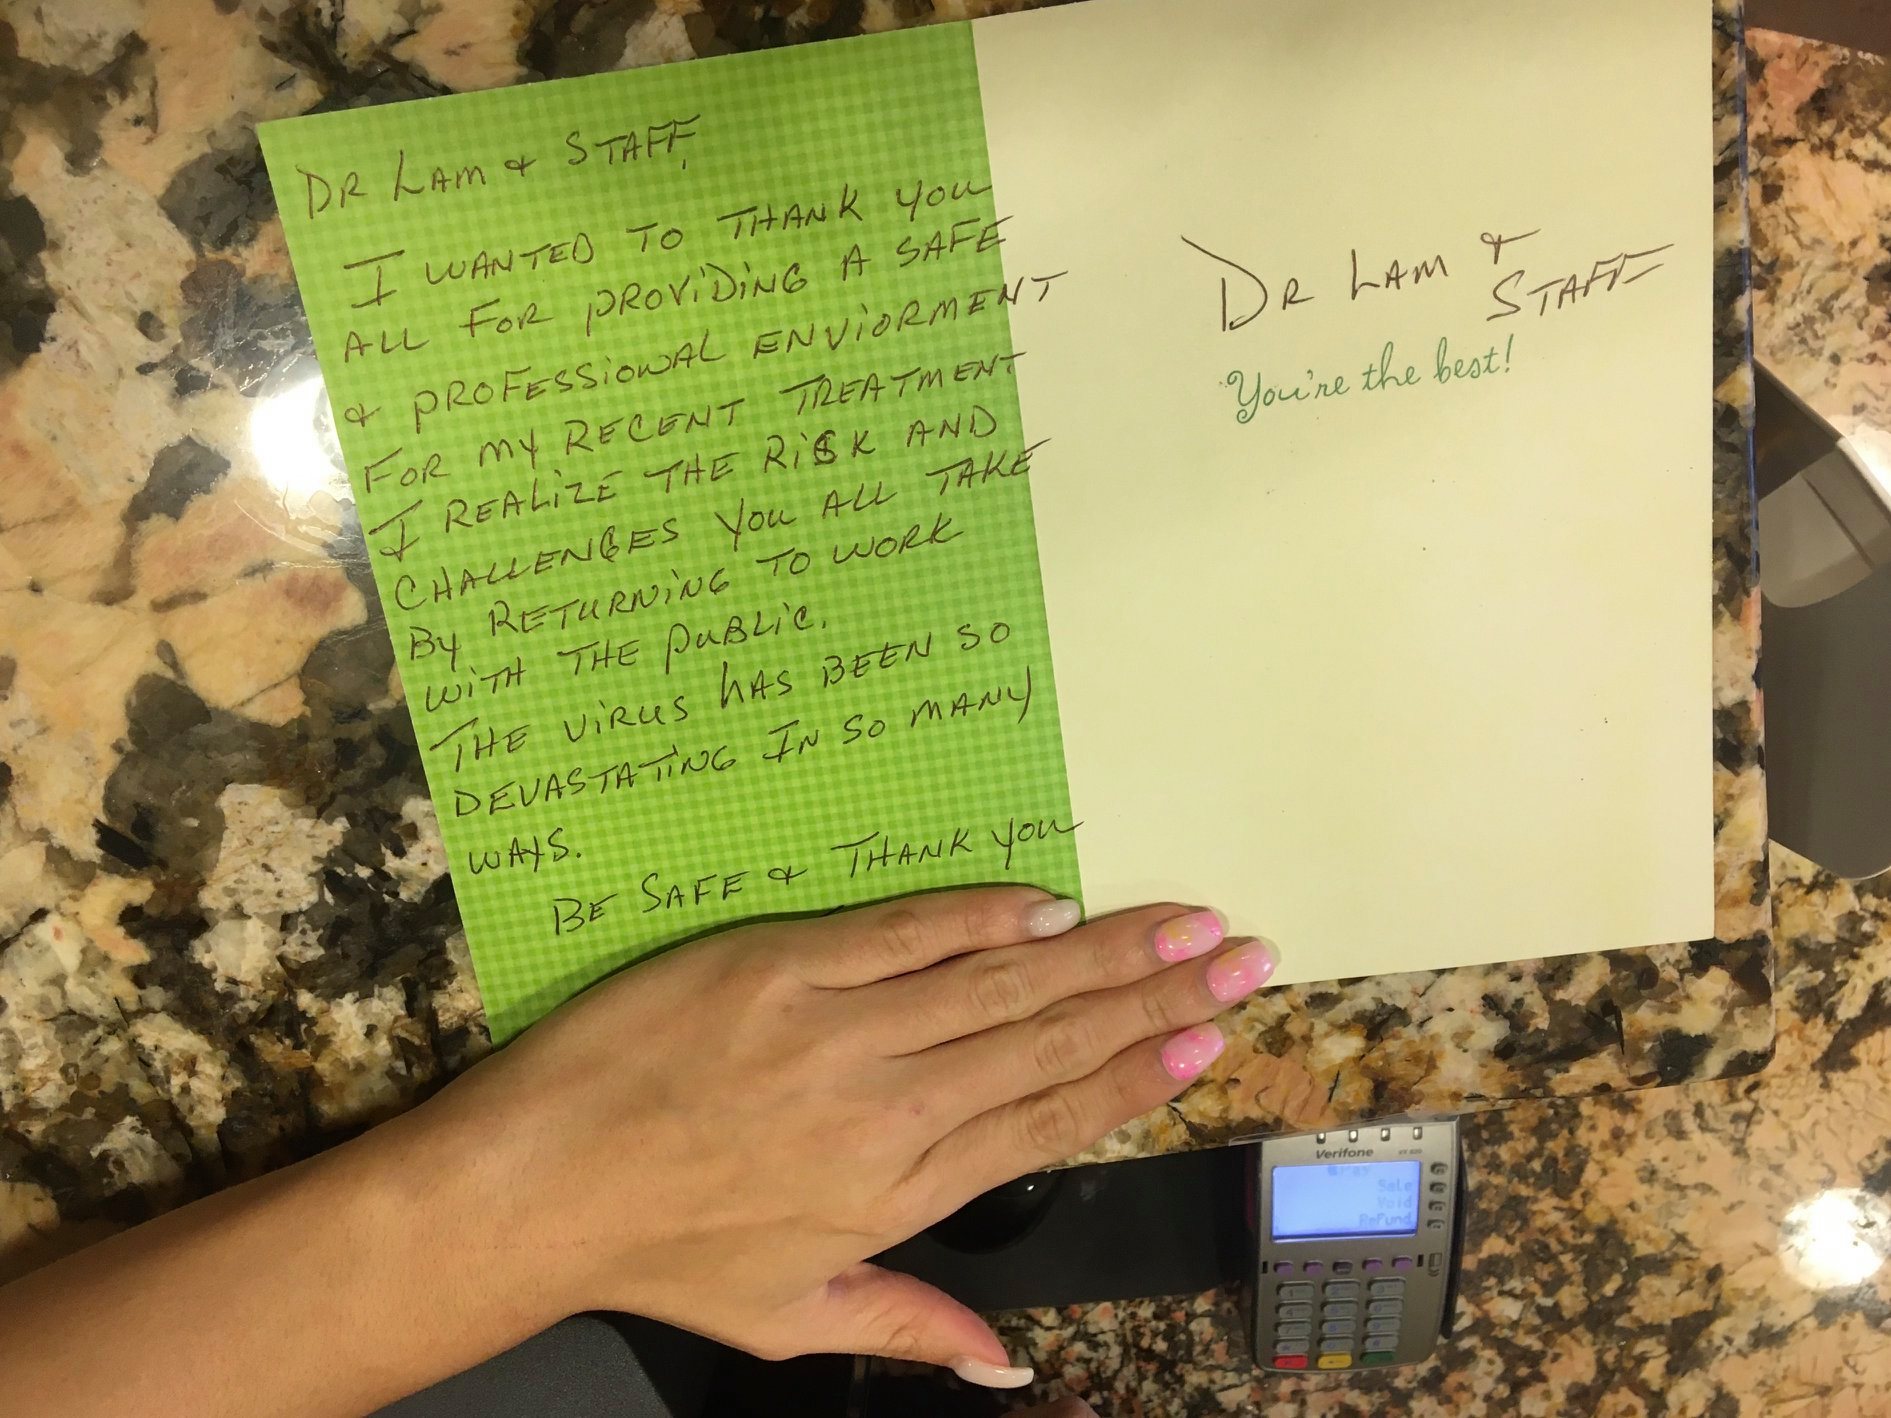 DR LAM & STAFF,
I WANTED TO THANK YOU
ALL FOR PROVIDING A SAFE
& PROFESSIONAL ENVIORMENT
FOR MY RECENT TREATMENT
I REALIZE THE RISK AND
CHALLENGES YOU ALL TAKE
BY RETURNING TO WORK
WITH THE PUBLIC.
THE VIRUS HAS BEEN SO
DEVASTATING IN SO MANY
WAYS.
BE SAFE & THANK YOU
DR LAM &
STAFF
You're the best!
Verifone
Sale
Void
Refund